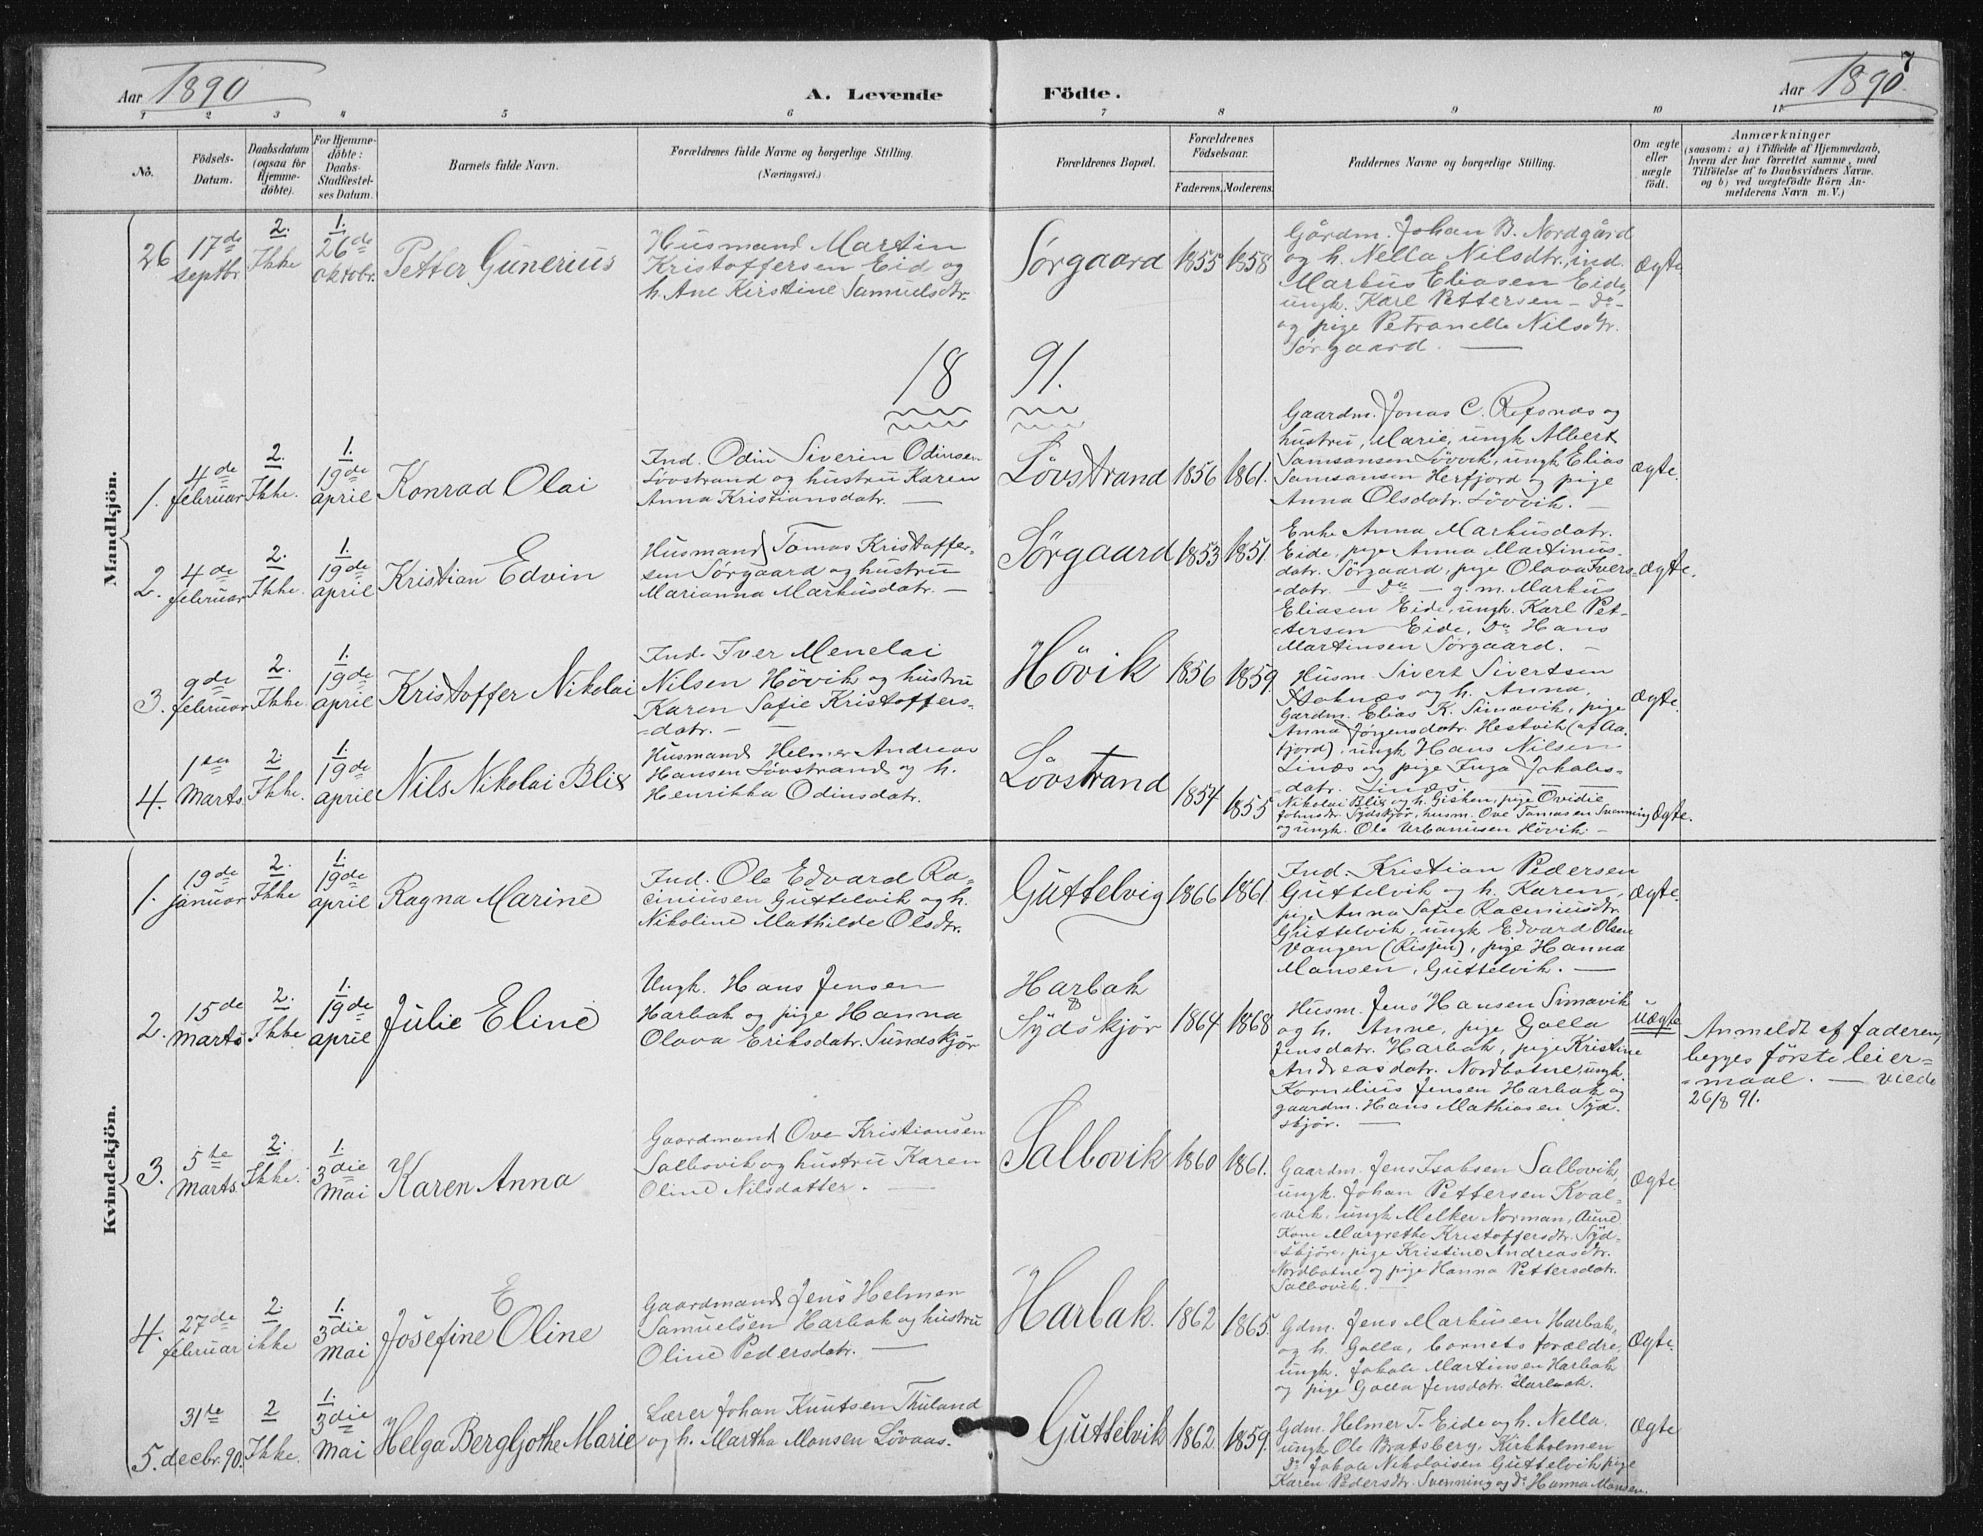 Aar 1890
A. Levende Födte.
7
Aar 1890.
1 2 3 4 5 6 7 8 9 10 11
No.
Födsels-
Datum.
Daabsdatum
(ogsaa för
Hjemme-
döbte).
For Hjemme-
döbte:
Daabs-
Stadfæstel-
ses Datum.
Barnets fulde Navn.
Forældrenes fulde Navne og borgerlige Stilling.
(Næringsvei.)
Forældrenes Bopæl.
Forældrenes
Födselsaar.
Faderens. Moderens.
Faddernes Navne og borgerlige Stilling.
Om ægte
eller
uægte
födt.
Anmærkninger
(saasom: a) i Tilfælde af Hjemmedaab,
hvem der har forrettet samme, med
Tilföielse af to Daabsvidners Navne,
og b) ved uægtefödte Börn An-
melderens Navn m. V.)
Mandkjön.
26
17de
septbr.
2.
Ikke
1.
26de
oktobr.
Petter Gunerius
Husmand Martin
Kristoffersen Eid og
h. Ane Kirstine Samuelsdtr.
Sørgaard
1855
1858
Gårdm. Johan B. Nordgård
og h. Nella Nilsdtr, ind.
Markus Eliasen Eide,
ungk. Karl Pettersen - do -
og pige Petranelle Nilsdtr.
Sørgaard.
Ægte
18 91.
1.
4de
februar
2.
Ikke.
1.
19de
april
Konrad Olai
Ind. Odin Siverin Odinsen
Lövstrand og hustru Karen
Anna Kristiansdatr.
Lövstrand
1856
1861.
Gaardm. Jonas C. Refsnæs og
hustru, Marie, ungk Albert
Samsonsen Lövvik, ungk Elias
Samsonsen Herfjord og pige
Anna Olsdatr. Lövvik.
Ægte.
2.
4de
februar
2.
Ikke.
1.
19de
april
Kristian Edvin
Husmand Tomas Kristoffer-
sen Sørgaard og hustru
Marianna Markusdatr.
Sørgaard
1853
1851.
Enke Anna Markusdatr.
Eide, pige Anna Martinus-
datr. Sørgaard, pige Olava Ivers-
datr. - Do - g. m. Markus
Eliasen Eide, ungk. Karl Pet-
tersen Eide, Do Hans
Martinsen Sørgaard.
Ægte.
3.
9de
februar
2.
Ikke.
1.
19de
april
Kristoffer Nikolai
Ind. Iver Menelai
Nilsen Hövik og hustru
Karen Sofie Kristoffers-
datr.
Hövik
1856
1859.
Husm. Sivert Sivertsen
og h. Anna,
Gardm. Elias K. Simavik, pige
Anna Jörgensdatr. Hestvik (af Aa-
fjord), ungk Hans Nilsen
Linæs og pige Inga Jakobs-
datr. Linæs.
Ægte.
4.
1ste
Marts.
2.
Ikke.
1.
19de
april
Nils Nikolai Blix
Husmand Helmer Andreas
Hansen Lövstrand og h.
Henrikka Odinsdatr.
Lövstrand
1854
1855
Nikolai Blix og h. Gisken, pige Ovidie
Johnsdr. Sydskjör, husm. Ove Tomasen Svenning
og ungk. Ole Urbanusen Hövik.
Ægte.
Kvindekjön.
1.
19de
januar
2.
Ikke
1.
19de
april
Ragna Marine
Ind. Ole Edvard Ra-
siniusen Guttelvik og h.
Nikoline Mathilde Olsdtr.
Guttelvig
1866
1861
Ind. Kristian Pedersen
Guttelvik og h. Karen,
pige Anna Sofie Raciniusdtr
Guttelvik, ungk Edvard Olsen
Vangen (Rissen), pige Hanna
Monsen, Guttelvik.
Ægte.
2.
15de
Marts
2.
Ikke
1.
19de
april
Julie Eline
Ungk. Hans Jensen
Harbak og pige Hanna
Olava Eriksdatr. Sundskjör
Harbak
&
Sydskjör
1864
1868
Husm. Jens Hansen Simavik
og h. Anne, pige Golla
Jensdatr. Harbak, pige Kristine
Andreasdatr. Nordbotne, ungk.
Kornelius Jensen Harbak og
gaardm. Hans Mathiasen Syd-
skjör.
Uægte
Anmeldt af faderen,
begges förste leier-
maal. - viede
26/8 91.
3.
5te
Marts.
2.
Ikke.
1.
3die
Mai
Karen Anna
Gaardmand Ove Kristiansen
Salbovik og hustru Karen
Oline Nilsdatter.
Salbovik
1860
1861.
Gaardm. Jens Isaksen Salbovik,
ungk. Johan Pettersen Kval-
vik, ungk Melker Norman, Aune
Kone Margrethe Kristoffersdtr. Syd-
skjör, pige Kristine Andreasdtr.
Nordbotne og pige Hanna Pettersdatr.
Salbovik.
Ægte
4.
27de
februar
2.
ikke
1.
3die
Mai
E
Josefine Oline
Gaardmand Jens Helmer
Samuelsen Harbak og hustru
Oline Pedersdatr.
Harbak.
1862
1865.
Gdm. Jens Markusen Harbak,
og h. Golla, barnets forældre,
ungk. Jakob Martinsen Harbak
og pige Golla Jensdatr. Harbak.
Ægte.
5.
31te
decbr. 90.
2
Ikke.
1.
3die
Mai
Helga Bergljothe Marie
Lærer Johan Knutsen Thuland
og h. Martha Monsen Lövaas.
Guttelvik
1862.
1859.
Gdm. Helmer T. Eide og h. Nella,
ungk Ole Bratsberg, Kirkholmen
Do Jakob Nikolaisen Guttelvik pige
Karen Pedersdtr. Svenning og Do Hanna Monsen.
Ægte